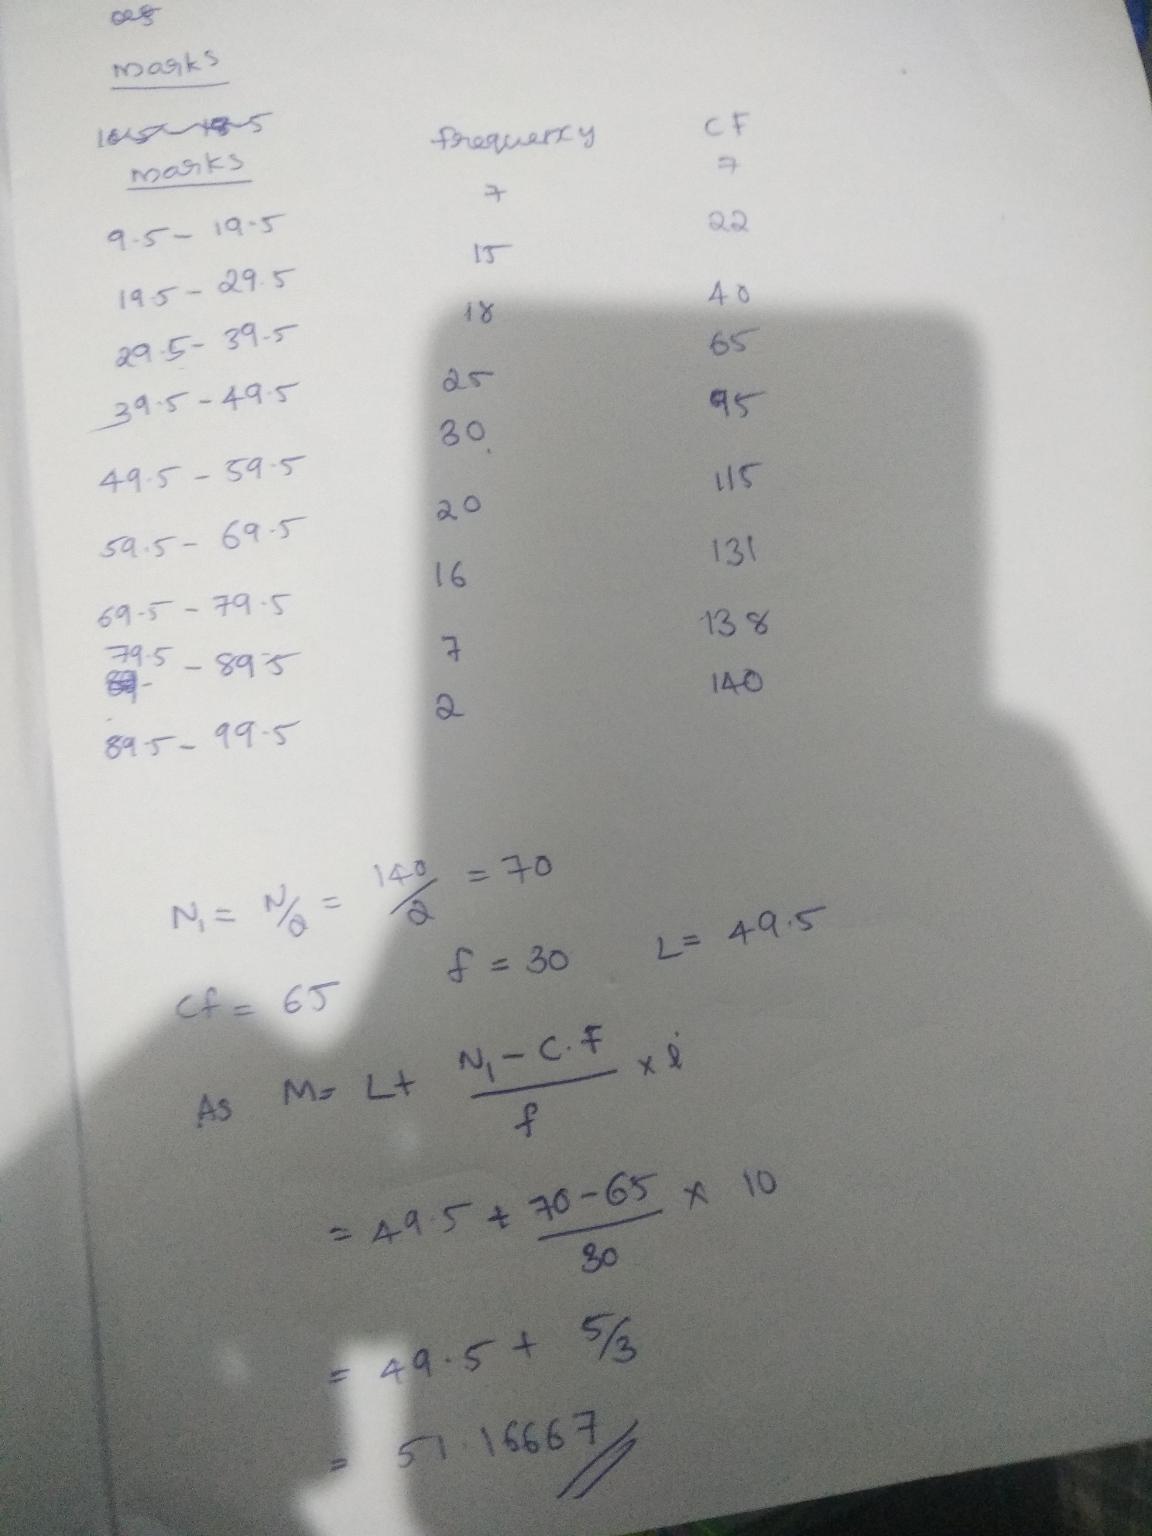 marks
marks frequency CF
9.5 - 19.5 7 7
19.5 - 29.5 15 22
29.5 - 39.5 18 40
39.5 - 49.5 25 65
49.5 - 59.5 30 95
59.5 - 69.5 20 115
69.5 - 79.5 16 131
79.5 - 89.5 7 138
89.5 - 99.5 2 140
N₁ = N/2 = 140/2 = 70
cf = 65 f = 30 L = 49.5
As M = L + (N₁ - C.F)/f × i
= 49.5 + (70 - 65)/30 × 10
= 49.5 + 5/3
= 51.16667